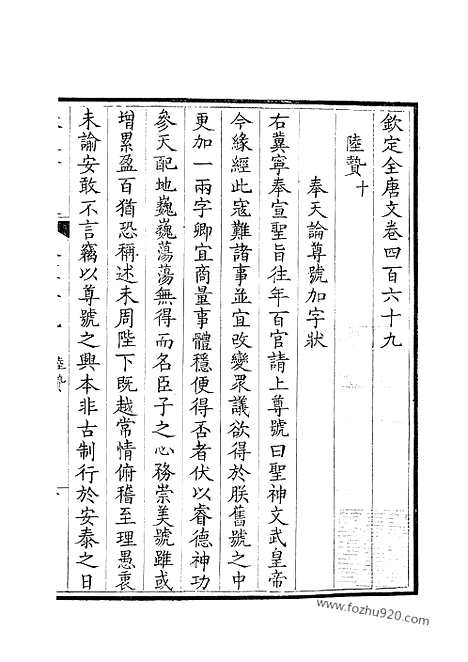 欽定全唐文卷四百六十九
陸贄十
奉天論尊號加字狀
右冀寧奉宣聖旨往年百官請上尊號曰聖神文武皇帝
今緣經此寇難諸事並宜改變眾議欲得於朕舊號之中
更加一兩字卿宜商量事體穩便得否者伏以睿德神功
參天配地巍巍蕩蕩無得而名臣子之心務崇美號雖或
增累盈百猶恐稱述未周陛下既越常情俯稽至理愚衷
未諭安敢不言竊以尊號之興本非古制行於安泰之日
陸贄
www.fozhu920.com